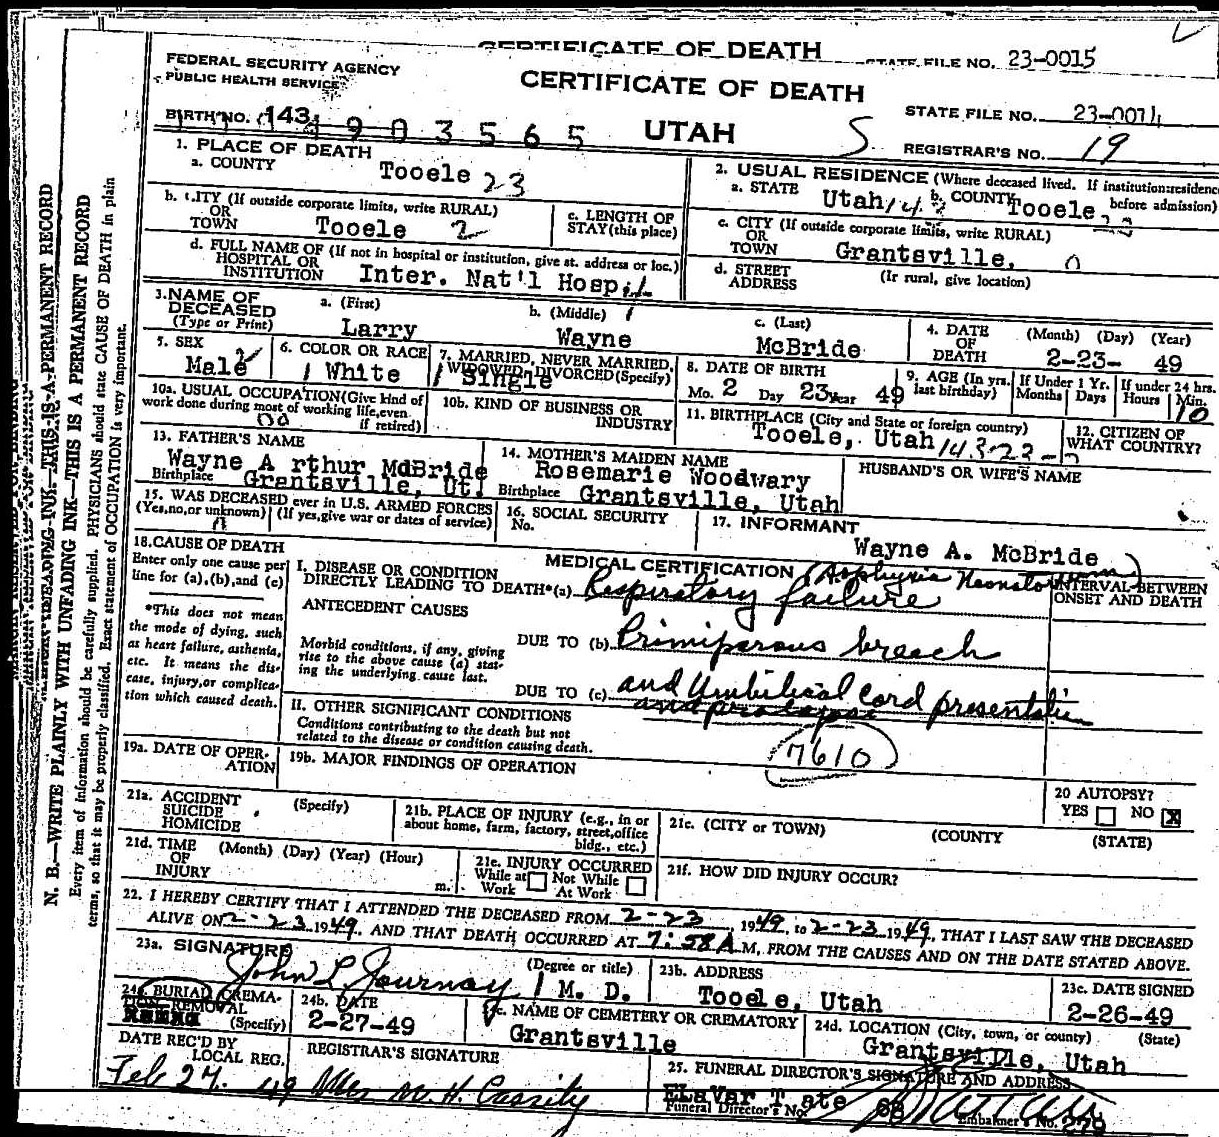 CERTIFICATE OF DEATH
STATE FILE NO. 23-0015
FEDERAL SECURITY AGENCY
PUBLIC HEALTH SERVICE
CERTIFICATE OF DEATH
STATE FILE NO. 23-0014
BIRTH NO. 143
4 9 0 3 5 6 5
UTAH
S
REGISTRAR'S NO. 19
1. PLACE OF DEATH
a. COUNTY Tooele 23
2. USUAL RESIDENCE (Where deceased lived. If institution: residence before admission)
a. STATE Utah 143 b. COUNTY Tooele 23
b. CITY (If outside corporate limits, write RURAL)
OR
TOWN Tooele 2
c. LENGTH OF
STAY (this place)
c. CITY (If outside corporate limits, write RURAL)
OR
TOWN Grantsville, 0
d. FULL NAME OF (If not in hospital or institution, give st. address or loc.)
HOSPITAL OR
INSTITUTION Inter. Nat'l Hospit.
d. STREET
ADDRESS
(Ir rural, give location)
3. NAME OF
DECEASED
(Type or Print)
a. (First) Larry
b. (Middle) Wayne
c. (Last) McBride
4. DATE
OF
DEATH
(Month) (Day) (Year)
2-23- 49
5. SEX
Male 2
6. COLOR OR RACE
1 White
7. MARRIED, NEVER MARRIED,
WIDOWED, DIVORCED (Specify)
1 Single
8. DATE OF BIRTH
Mo. 2 Day 23 Year 49
9. AGE (In yrs.
last birthday)
If Under 1 Yr.
Months Days
If under 24 hrs.
Hours Min.
10
10a. USUAL OCCUPATION (Give kind of
work done during most of working life, even
if retired)
00
10b. KIND OF BUSINESS OR
INDUSTRY
11. BIRTHPLACE (City and State or foreign country)
Tooele, Utah 143-23-
12. CITIZEN OF
WHAT COUNTRY?
13. FATHER'S NAME
Wayne A rthur McBride
Birthplace Grantsville, Ut.
14. MOTHER'S MAIDEN NAME
Rosemarie Woodwary
Birthplace Grantsville, Utah
HUSBAND'S OR WIFE'S NAME
15. WAS DECEASED ever in U.S. ARMED FORCES
(Yes, no, or unknown) (If yes, give war or dates of service)
0
16. SOCIAL SECURITY
No.
17. INFORMANT
Wayne A. McBride
18. CAUSE OF DEATH
Enter only one cause per
line for (a), (b), and (c)
MEDICAL CERTIFICATION (Asphyxia Neonatorum)
INTERVAL BETWEEN
ONSET AND DEATH
I. DISEASE OR CONDITION
DIRECTLY LEADING TO DEATH*(a) Respiratory failure
*This does not mean
the mode of dying, such
as heart failure, asthenia,
etc. It means the dis-
ease, injury, or complica-
tion which caused death.
ANTECEDENT CAUSES
Morbid conditions, if any, giving
rise to the above cause (a) stat-
ing the underlying cause last.
DUE TO (b) Primiparous breach
DUE TO (c) and Umbilical cord presentation
and prolapse
II. OTHER SIGNIFICANT CONDITIONS
Conditions contributing to the death but not
related to the disease or condition causing death.
7610
19a. DATE OF OPER-
ATION
19b. MAJOR FINDINGS OF OPERATION
20 AUTOPSY?
YES NO X
21a. ACCIDENT
SUICIDE
HOMICIDE
(Specify)
21b. PLACE OF INJURY (e.g., in or
about home, farm, factory, street, office
bldg., etc.)
21c. (CITY or TOWN)
(COUNTY
(STATE)
21d. TIME
OF
INJURY
(Month) (Day) (Year) (Hour)
m.
21e. INJURY OCCURRED
While at
Work
Not While
At Work
21f. HOW DID INJURY OCCUR?
22. I HEREBY CERTIFY THAT I ATTENDED THE DECEASED FROM 2-23 1949, to 2-23 1949, THAT I LAST SAW THE DECEASED
ALIVE ON 2-23 1949, AND THAT DEATH OCCURRED AT 7:58A M, FROM THE CAUSES AND ON THE DATE STATED ABOVE.
23a. SIGNATURE
John L Journay
(Degree or title)
M. D.
23b. ADDRESS
Tooele, Utah
23c. DATE SIGNED
2-26-49
24a. BURIAL, CREMA-
TION REMOVAL
(Specify)
24b. DATE
2-27-49
24c. NAME OF CEMETERY OR CREMATORY
Grantsville
24d. LOCATION (City, town, or county)
(State)
Grantsville, Utah
DATE REC'D BY
LOCAL REG.
Feb 27. 49
REGISTRAR'S SIGNATURE
M. H. Cassity
25. FUNERAL DIRECTOR'S SIGNATURE AND ADDRESS
ELaVar T ate
Funeral Director's No. 68
Embalmer's No. 279
N. B.—WRITE PLAINLY WITH UNFADING INK—THIS IS A PERMANENT RECORD
Every item of information should be carefully supplied. PHYSICIANS should state CAUSE OF DEATH in plain
terms, so that it may be properly classified. Exact statement of OCCUPATION is very important.